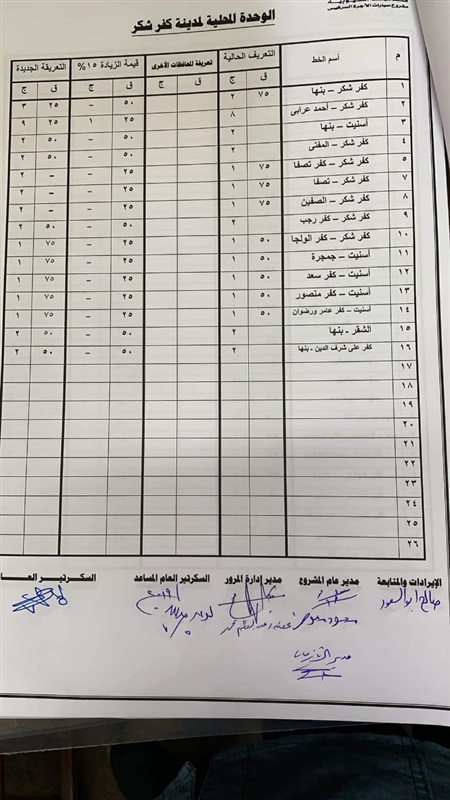 مشروع سيارات الأجرة السرفيس
الوحدة المحلية لمدينة كفر شكر
م أسم الخط التعريف الحالية تعريفة المحافظات الأخرى قيمة الزيادة ١٥% التعريفة الجديدة
ق ج ق ج ق ج ق ج
١ كفر شكر – بنها ٧٥ ٢ ٥٠ – ٢٥ ٣
٢ كفر شكر – أحمد عرابى ٨ ٢٥ ١ ٢٥ ٩
٣ أسنيت – بنها ٢ ٥٠ – ٥٠ ٢
٤ كفر شكر – المفتى ٢ ٥٠ – ٥٠ ٢
٥ كفر شكر – كفر تصفا ٧٥ ١ ٢٥ – – ٢
٧ كفر شكر – تصفا ٧٥ ١ ٢٥ – – ٢
٨ كفر شكر – الصفين ٧٥ ١ ٢٥ – – ٢
٩ كفر شكر – كفر رجب ٢ ٥٠ – ٥٠ ٢
١٠ كفر شكر – كفر الولجا ٥٠ ١ ٢٥ – ٧٥ ١
١١ أسنيت – جمجرة ٥٠ ١ ٢٥ – ٧٥ ١
١٢ أسنيت – كفر سعد ٥٠ ١ ٢٥ – ٧٥ ١
١٣ أسنيت – كفر منصور ٥٠ ١ ٢٥ – ٧٥ ١
١٤ أسنيت – كفر عامر ورضوان ٥٠ ١ ٢٥ – ٧٥ ١
١٥ الشقر - بنها ٢ ٥٠ – ٥٠ ٢
١٦ كفر على شرف الدين - بنها ٢ ٥٠ – ٥٠ ٢
١٧
١٨
١٩
٢٠
٢١
٢٢
٢٣
٢٤
٢٥
٢٦
الإيرادات والمتابعة مدير عام المشروع مدير إدارة المرور السكرتير العام المساعد السكرتير العا
صالح ابو السعود